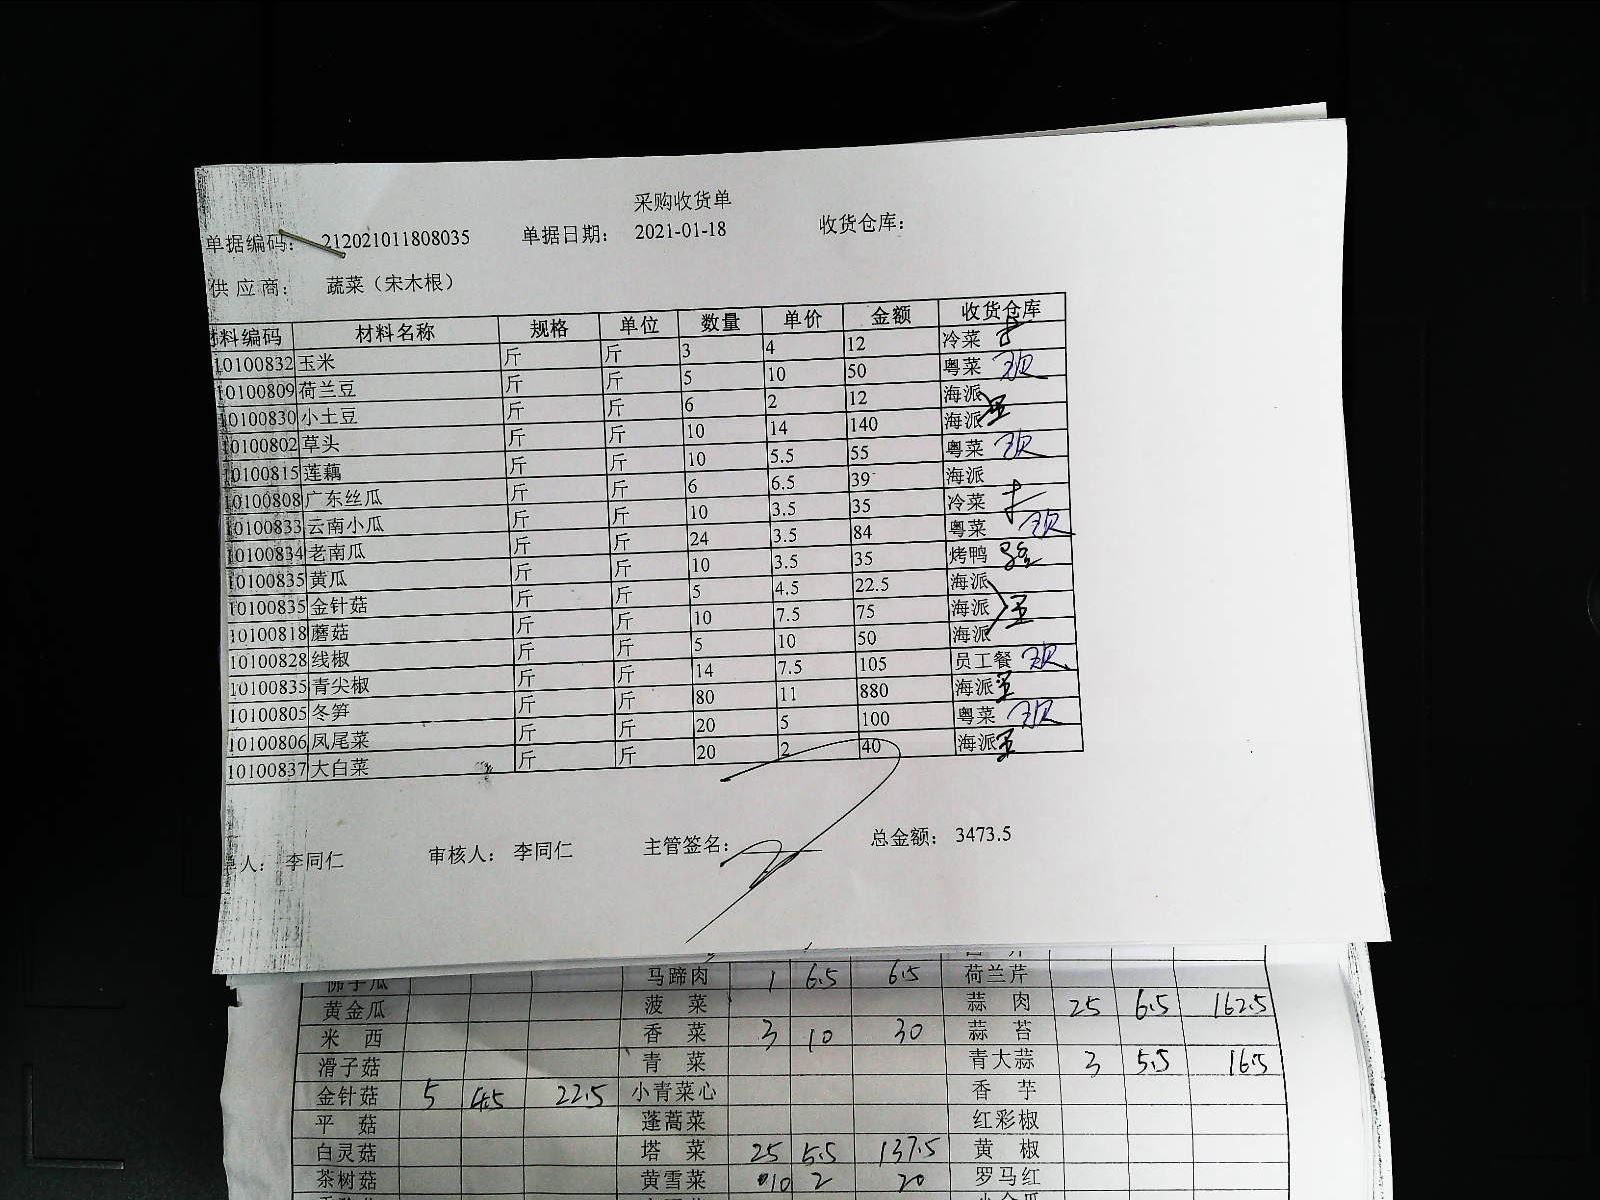 采购收货单
单据编码: 212021011808035 单据日期: 2021-01-18 收货仓库:
供应商: 蔬菜（宋木根）
料编码 材料名称 规格 单位 数量 单价 金额 收货仓库
10100832 玉米 斤 斤 3 4 12 冷菜
10100809 荷兰豆 斤 斤 5 10 50 粤菜
10100830 小土豆 斤 斤 6 2 12 海派
10100802 草头 斤 斤 10 14 140 海派
10100815 莲藕 斤 斤 10 5.5 55 粤菜
10100808 广东丝瓜 斤 斤 6 6.5 39 海派
10100833 云南小瓜 斤 斤 10 3.5 35 冷菜
10100834 老南瓜 斤 斤 24 3.5 84 粤菜
10100835 黄瓜 斤 斤 10 3.5 35 烤鸭
10100835 金针菇 斤 斤 5 4.5 22.5 海派
10100818 蘑菇 斤 斤 10 7.5 75 海派
10100828 线椒 斤 斤 5 10 50 海派
10100835 青尖椒 斤 斤 14 7.5 105 员工餐
10100805 冬笋 斤 斤 80 11 880 海派
10100806 凤尾菜 斤 斤 20 5 100 粤菜
10100837 大白菜 斤 斤 20 2 40 海派
人: 李同仁 审核人: 李同仁 主管签名: 总金额: 3473.5
佛手瓜 马蹄肉 1 6.5 6.5 荷兰芹
黄金瓜 菠菜 蒜肉 25 6.5 162.5
米西 香菜 3 10 30 蒜苔
滑子菇 青菜 青大蒜 3 5.5 16.5
金针菇 5 4.5 22.5 小青菜心 香芋
平菇 蓬蒿菜 红彩椒
白灵菇 塔菜 25 5.5 137.5 黄椒
茶树菇 黄雪菜 10 2 20 罗马红